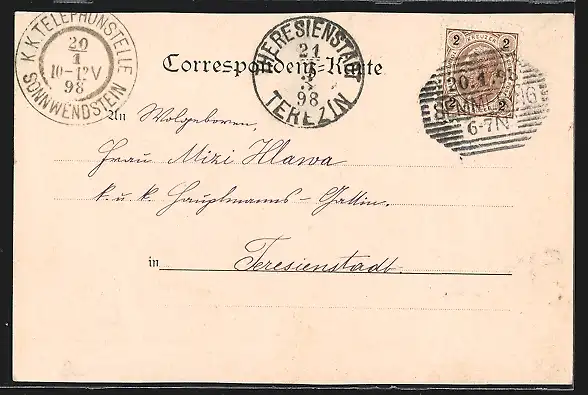 K.K. TELEPHONSTELLE
20
1
10-12V
98
SONNWENDSTEIN
THERESIENSTADT
21
1
98
TEREZIN
Correspondenz-Karte
2 KREUZER 2
2 2
20.1.98
6-7N
An Wolgeboren,
Frau Mizi Hlawa
k. u. k. Hauptmanns-Gattin.
in Teresienstadt.